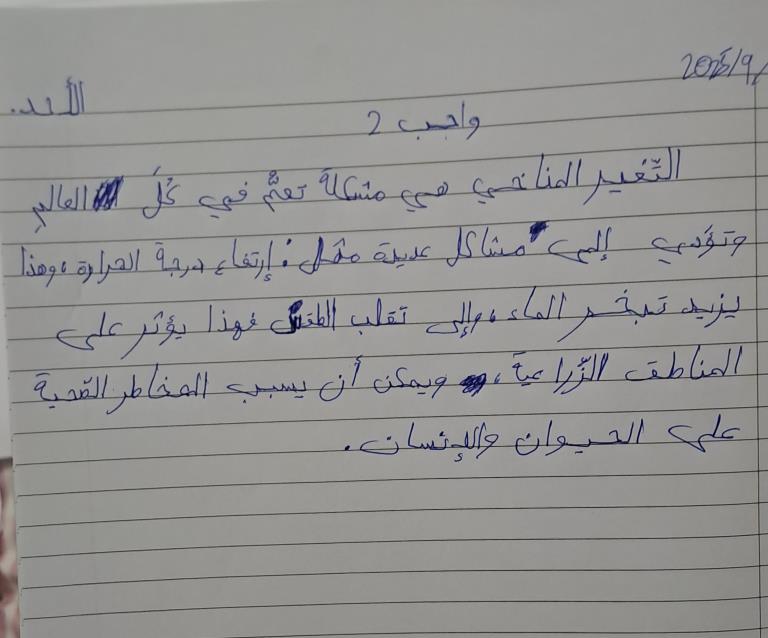 2025/9/
الأحد.
واجب 2
التّغير المناخي هي مشكلة تعمُّ في كلَّ العالم
وتؤدي إلى مشاكل عديدة مثل: إرتفاع درجة الحرارة، وهذا
يزيد تبخر الماء، وإلى تقلب الطقس فهذا يؤثر على
المناطق الزّراعية، ويمكن أن يسبب المخاطر الصّحية
على الحيوان والإنسان.